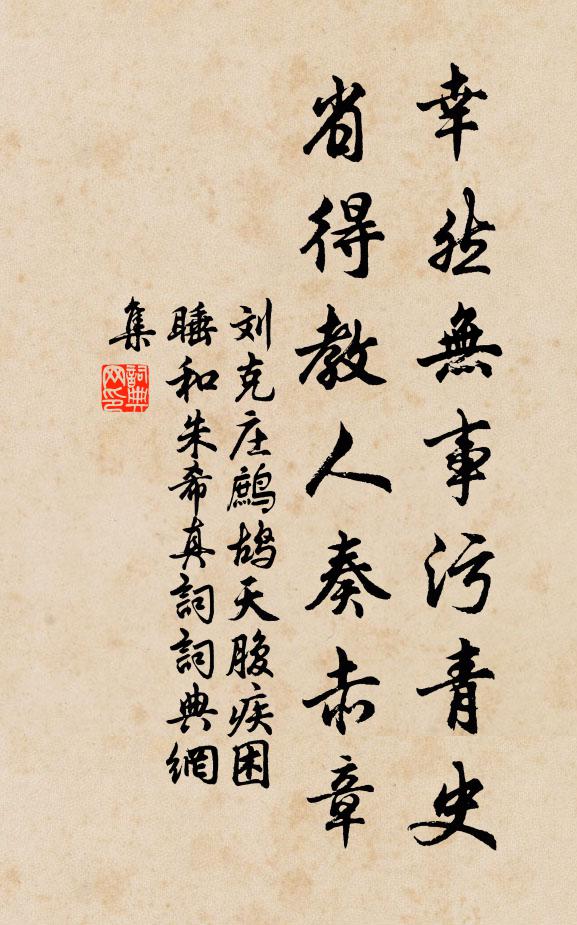 幸然無事污青史
省得教人奏赤章
刘克庄鹧鸪天腹疾困
睡和朱希真詞詞典網
集
詞典網印